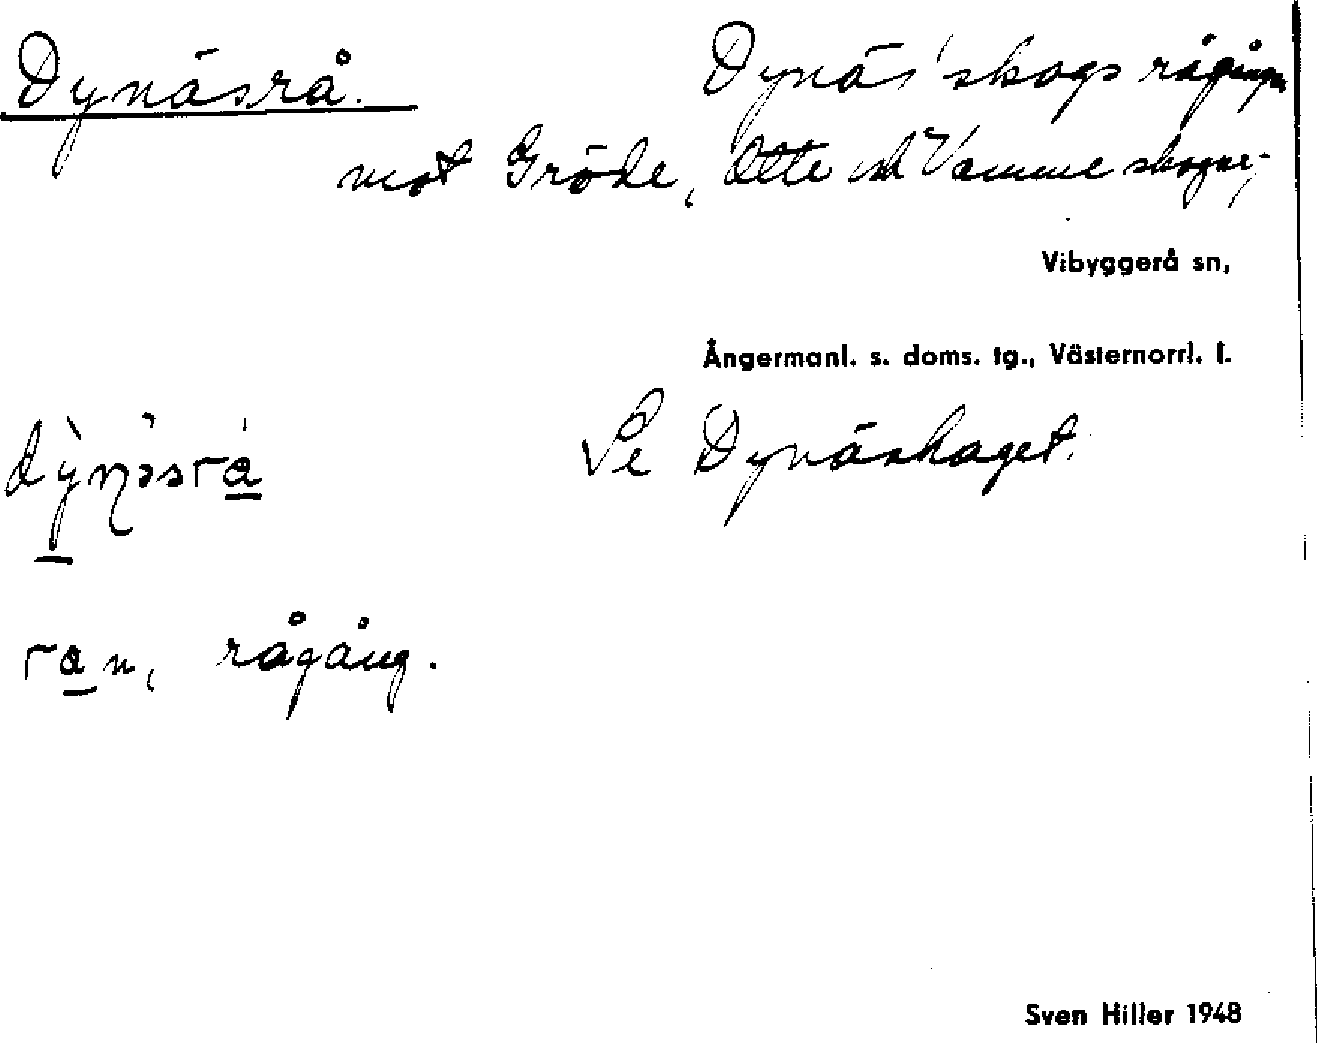 Dynäsrå. Dynäs' skogs rågångar
mot Gröde, Utte och Vamme skogar.
Vibyggerå sn,
Ångermanl. s. doms. tg., Västernorrl. l.
Se Dynäskaget.
rå n, rågång.
Sven Hiller 1948